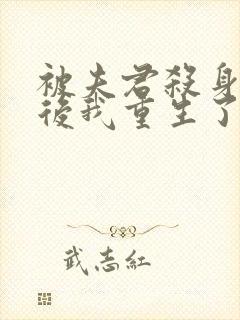 被夫君殺身
後我重生了
武志紅